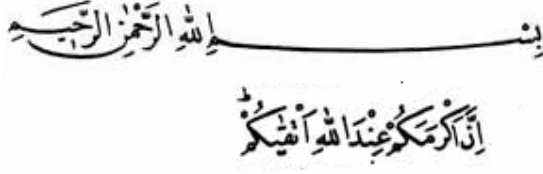 بِسْمِ اللهِ الرَّحْمٰنِ الرَّحِيْمِ
اِنَّ اَكْرَمَكُمْ عِنْدَ اللهِ اَتْقٰىكُمْ ؕ